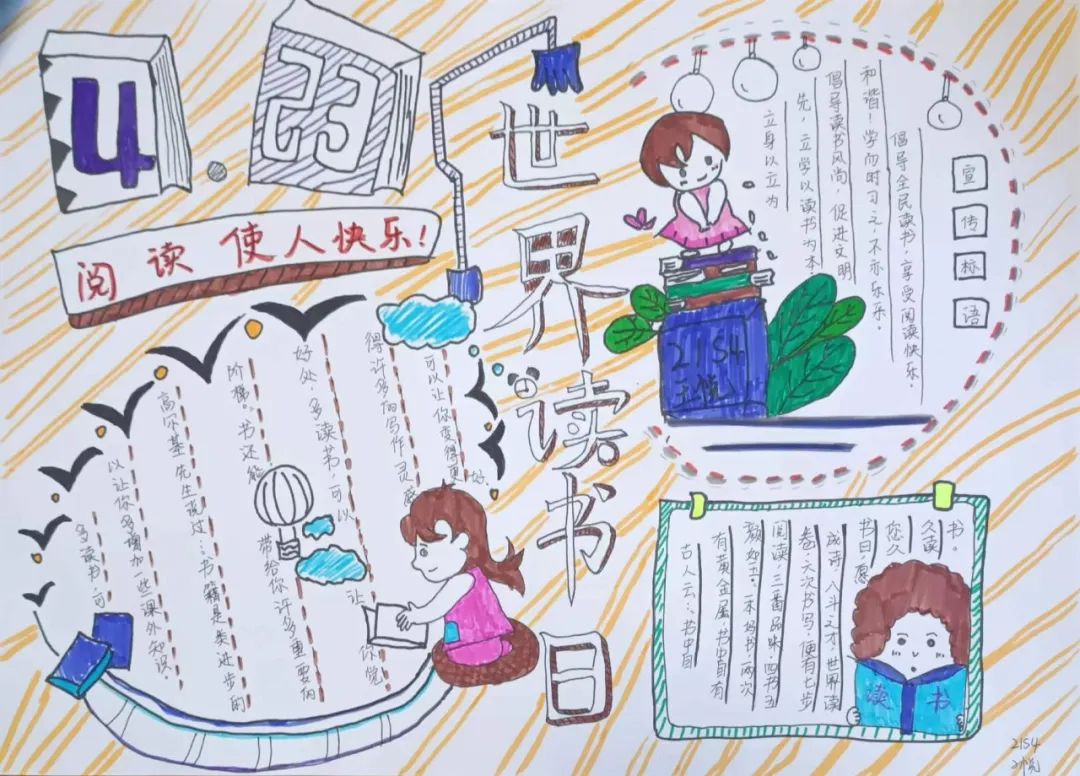 4.23
阅读使人快乐!
世界读书日
宣传标语
立身以立为
先,立学以读书为本
倡导读书风尚,促进文明
和谐!学而时习之,不亦乐乐。
倡导全民读书,享受阅读快乐。
2154
多读书,可
以让你多增加一些课外知识,
高尔基先生说过:书籍是类进步的
阶梯。书还能带给你许多重要的
好处,多读书,可以让你觉
得许多的写作灵感
可以让你变得更好.
古人云:书中自
有黄金屋,书中自有
颜如玉。一本好书,两次
阅读,三番品味,四书五
卷,六次书写,便有七步
成诗,八斗之才,世界读
书日,愿
您久
久读
书。
读书
2154